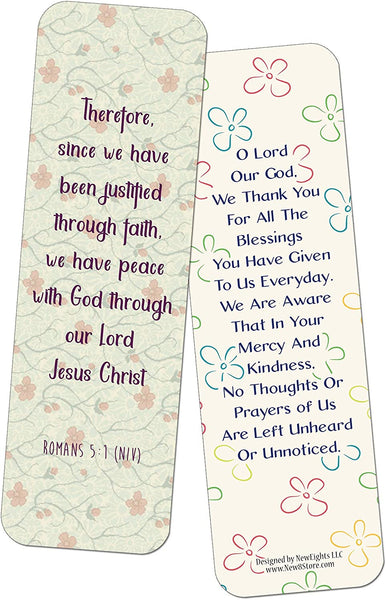 Therefore,
since we have
been justified
through faith,
we have peace
with God through
our Lord
Jesus Christ
ROMANS 5:1 (NIV)
O Lord
Our God,
We Thank You
For All The
Blessings
You Have Given
To Us Everyday.
We Are Aware
That In Your
Mercy And
Kindness.
No Thoughts Or
Prayers of Us
Are Left Unheard
Or Unnoticed.
Designed by NewEights LLC
www.New8Store.com